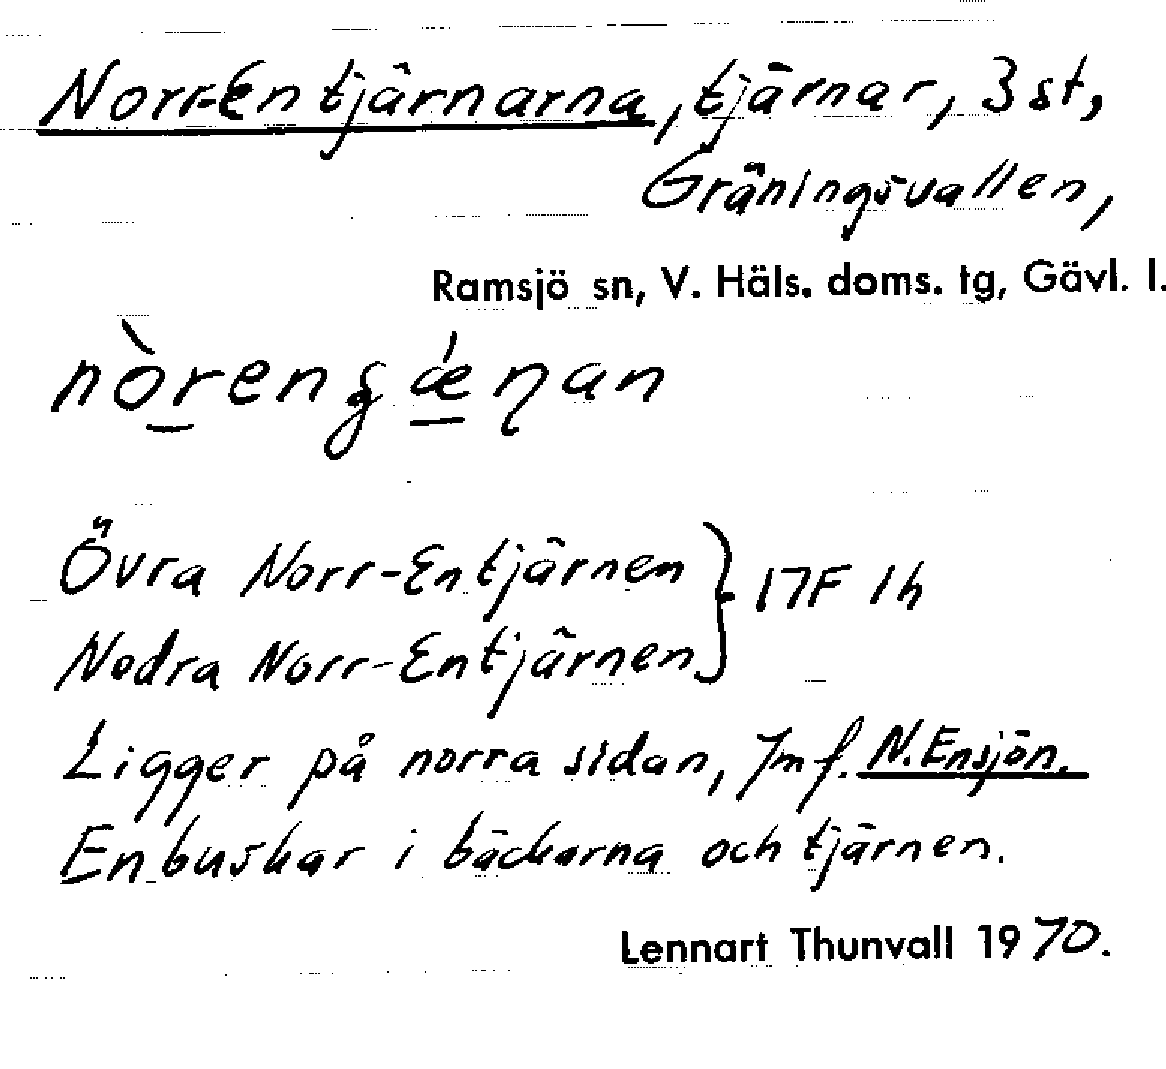 Norr-Entjärnarna, tjärnar, 3 st,
Gräningsvallen,
Ramsjö sn, V. Häls. doms. tg, Gävl. l.
Övra Norr-Entjärnen
Nedra Norr-Entjärnen } 17F 1h
Ligger på norra sidan, Jmf. N. Ensjön.
Enbuskar i bäckarna och tjärnen.
Lennart Thunvall 1970.